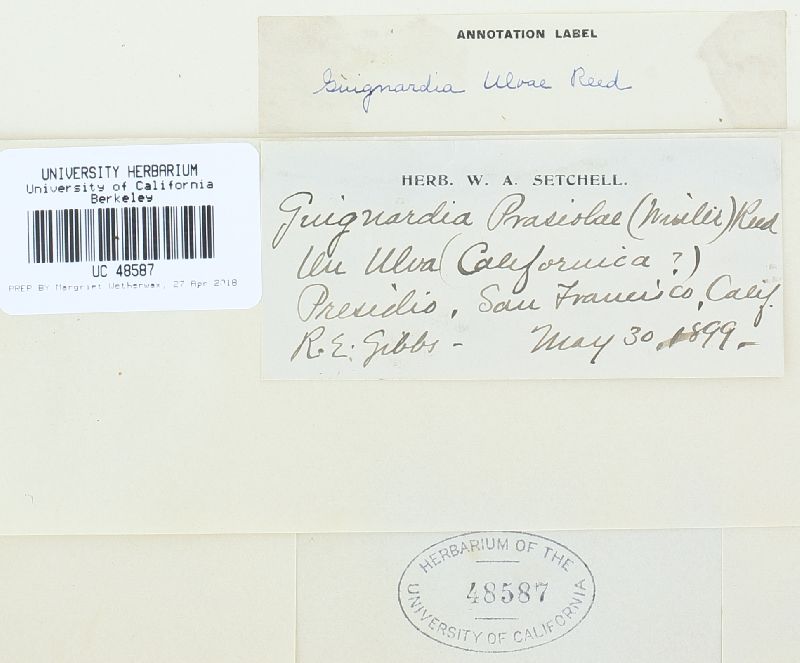 ANNOTATION LABEL
Guignardia Ulvae Reed
UNIVERSITY HERBARIUM
University of California
Berkeley
UC 48587
PREP BY Margriet Wetherwax, 27 Apr 2018
HERB. W. A. SETCHELL.
Guignardia Prasiolae (Winter) Reed
On Ulva (Californica ?)
Presidio, San Francisco, Calif.
R. E. Gibbs - May 30, 1899.
HERBARIUM OF THE
48587
UNIVERSITY OF CALIFORNIA